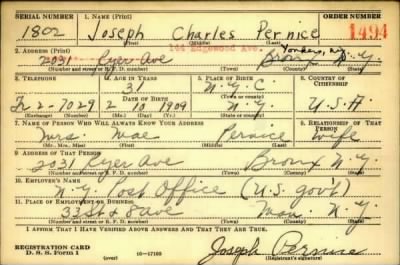 SERIAL NUMBER 1. NAME (Print) ORDER NUMBER
1802 Joseph Charles Pernice 1494
144 Edgewood Ave. Yonkers, N.Y.
2. ADDRESS (Print)
2031 Ryer Ave Bronx N.Y.
(Number and street or R. F. D. number) (Town) (County) (State)
3. TELEPHONE 4. AGE IN YEARS 5. PLACE OF BIRTH 6. COUNTRY OF CITIZENSHIP
31 N.Y.C.
2-7029 DATE OF BIRTH
2 10 1909 N.Y. U.S.A.
(Exchange) (Number) (Mo.) (Day) (Yr.) (State or country)
7. NAME OF PERSON WHO WILL ALWAYS KNOW YOUR ADDRESS 8. RELATIONSHIP OF THAT PERSON
Mrs Mae Pernice wife
(Mr., Mrs., Miss) (First) (Middle) (Last)
9. ADDRESS OF THAT PERSON
2031 Ryer Ave Bronx N.Y.
(Number and street or R. F. D. number) (Town) (County) (State)
10. EMPLOYER'S NAME
N.Y. Post Office (U.S. gov't)
11. PLACE OF EMPLOYMENT OR BUSINESS
33 St & 8 ave Man. N.Y.
(Number and street or R. F. D. number) (Town) (County) (State)
I AFFIRM THAT I HAVE VERIFIED ABOVE ANSWERS AND THAT THEY ARE TRUE.
REGISTRATION CARD
D. S. S. Form 1 (over) 16-17105 Joseph Pernice
(Registrant's signature)